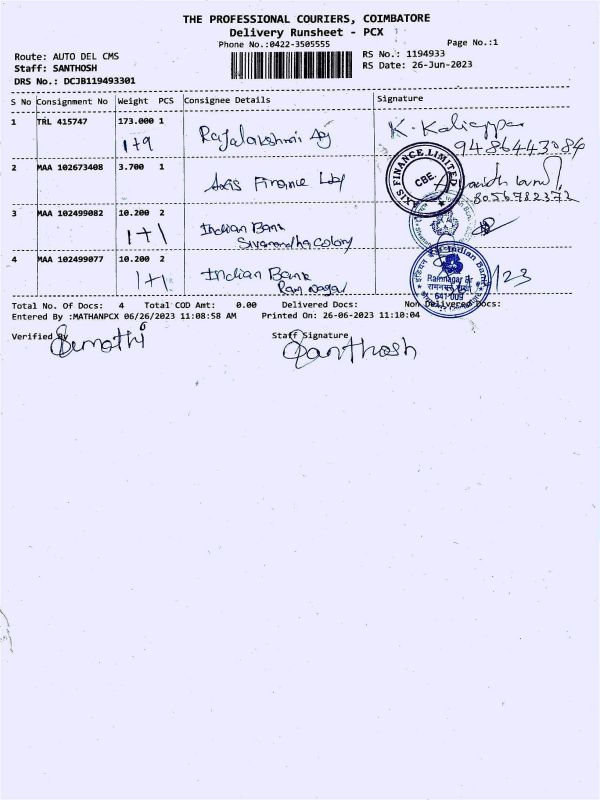 THE PROFESSIONAL COURIERS, COIMBATORE
Delivery Runsheet - PCX
Phone No.:0422-3505555
Page No.:1
Route: AUTO DEL CMS
RS No.: 1194933
Staff: SANTHOSH
RS Date: 26-Jun-2023
DRS No.: DCJB119493301
S No Consignment No Weight PCS Consignee Details Signature
1 TRL 415747 173.000 1
1+9 Rajalakshmi K. Kaliappa
9486443084
2 MAA 102673408 3.700 1
Axis Finance Ltd
AXIS FINANCE LIMITED
CBE.
8056782372
3 MAA 102499082 10.200 2
1+1 Indian Bank
Sivanandha Colony
4 MAA 102499077 10.200 2
1+1 Indian Bank
Ram nagar
Indian Bank
Ramnagar Br
641 009
/23
Total No. Of Docs: 4 Total COD Amt: 0.00 Delivered Docs: Non Delivered Docs:
Entered By :MATHANPCX 06/26/2023 11:08:58 AM Printed On: 26-06-2023 11:10:04
Verified By Staff Signature
Santhosh